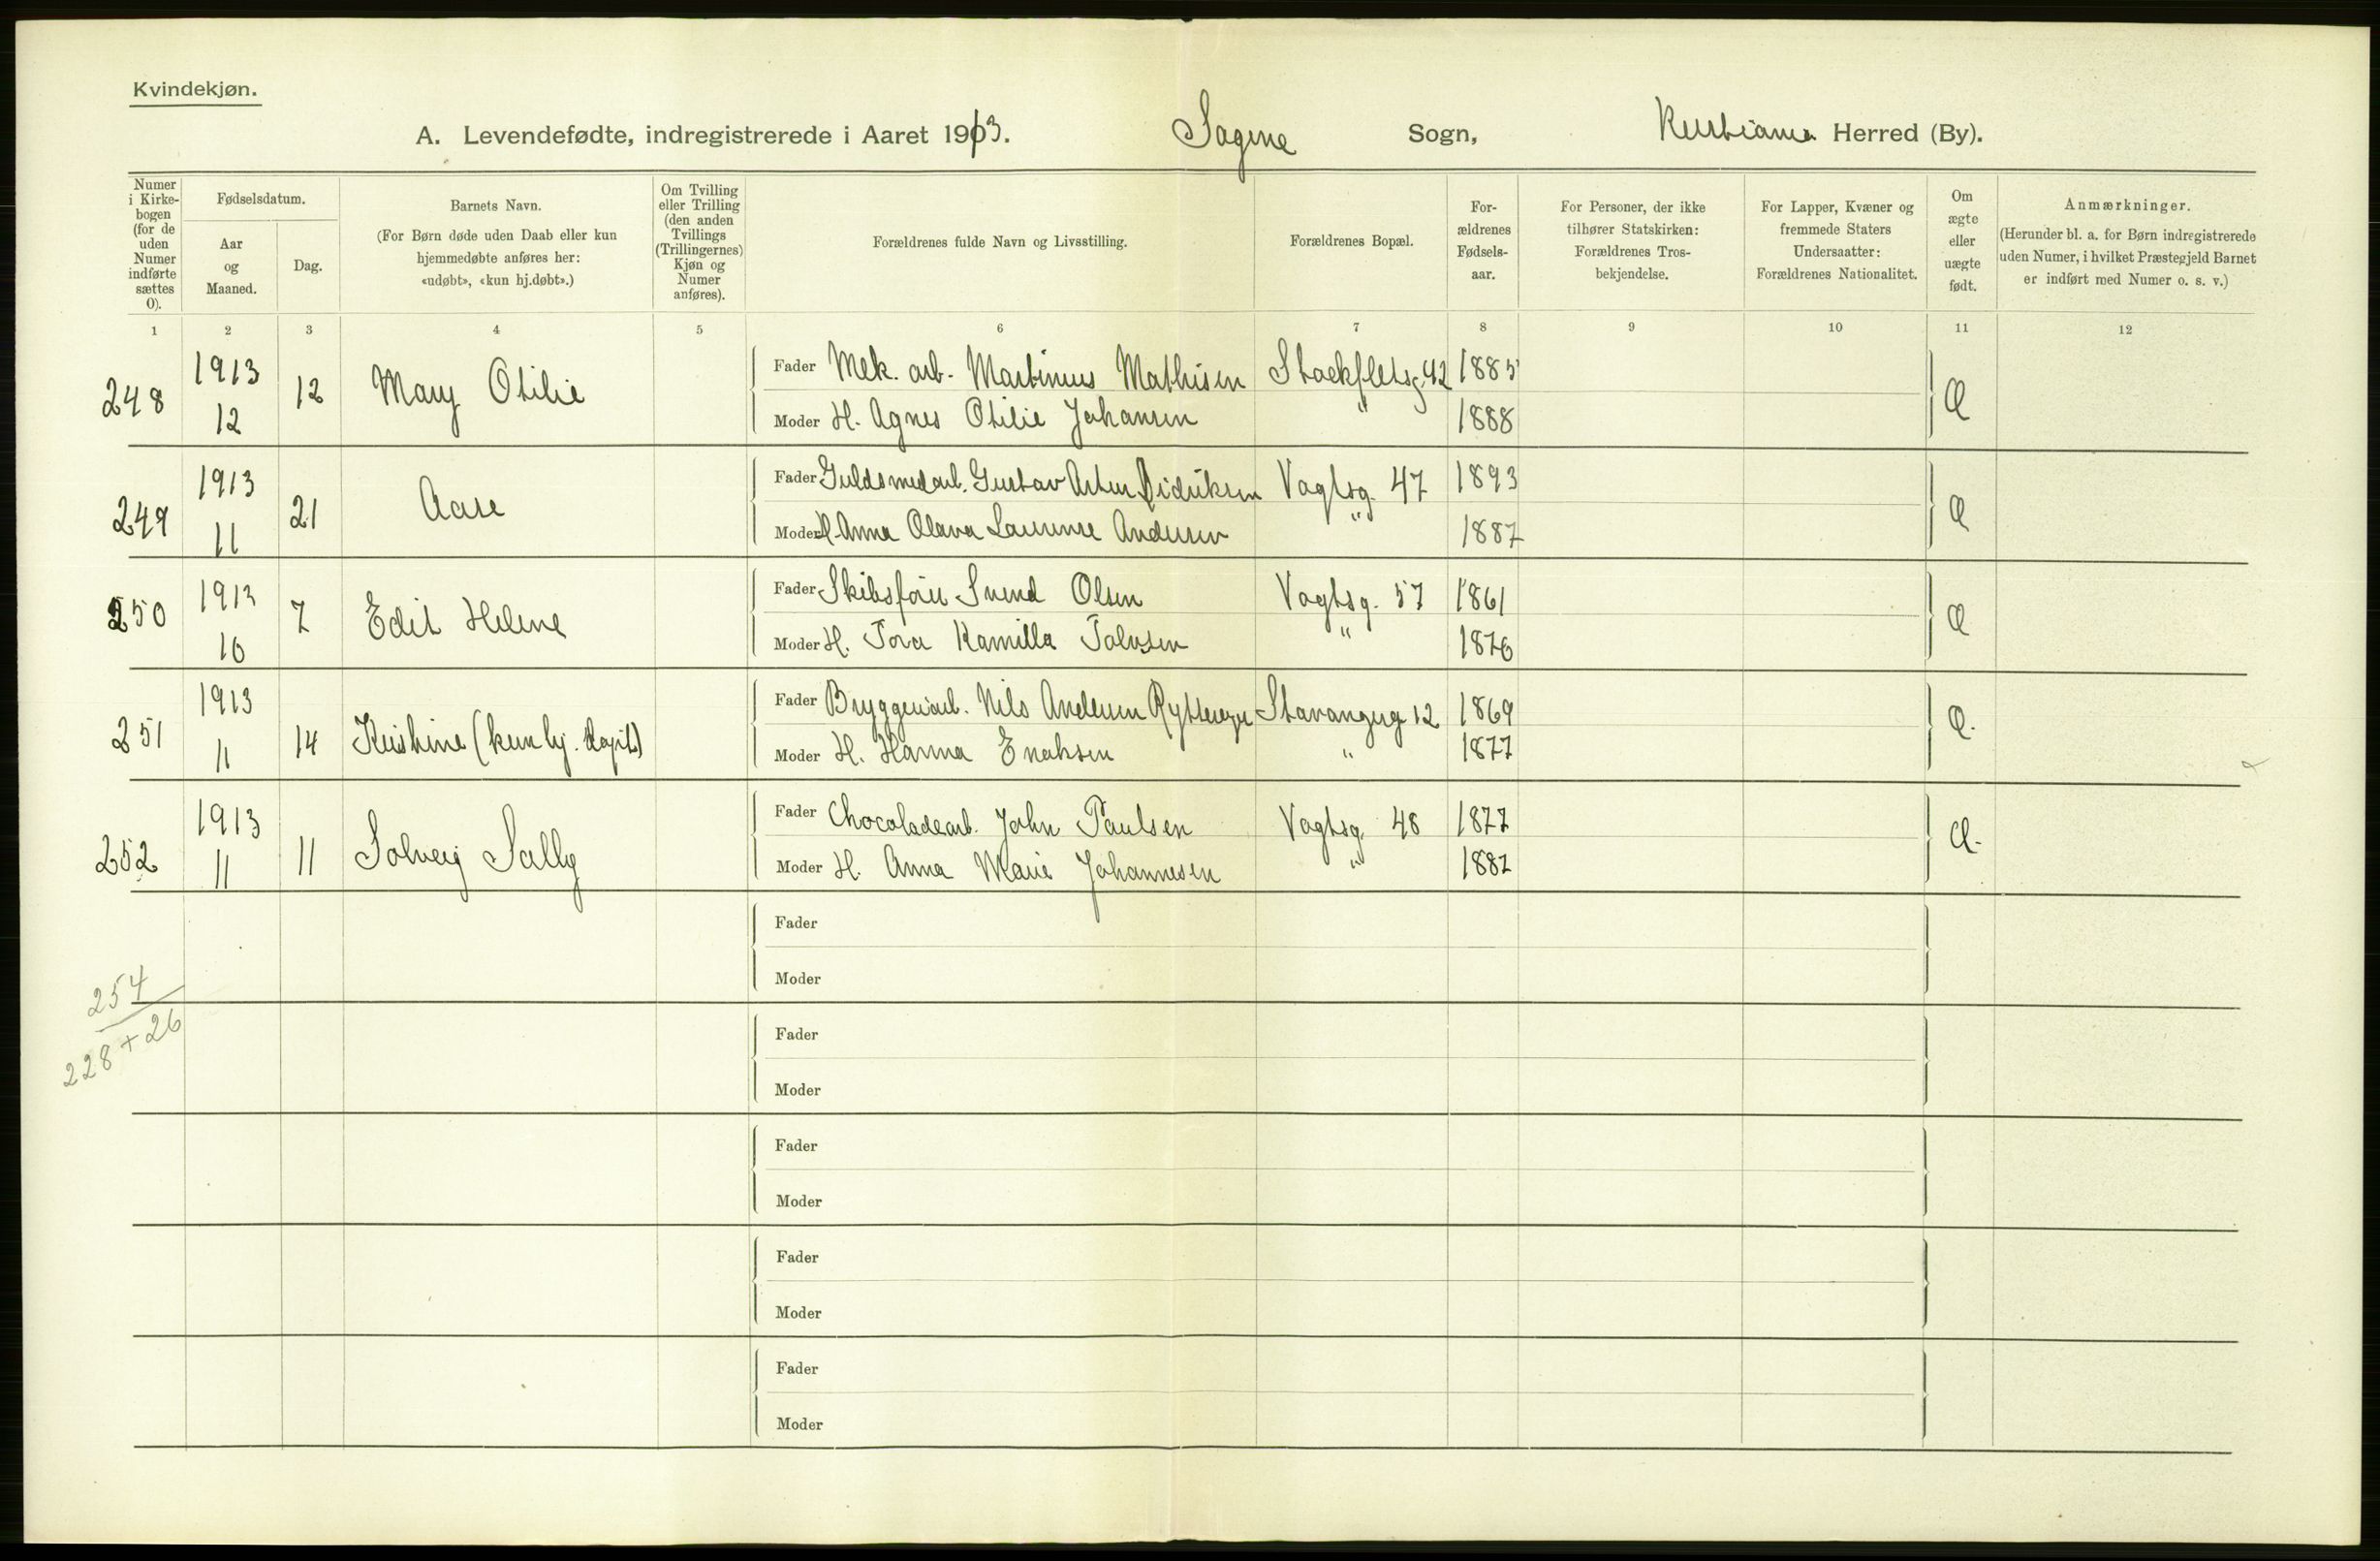 Kvindekjøn.
A. Levendefødte, indregistrerede i Aaret 1913. Sagene Sogn, Kristiania Herred (By).
Numer i Kirkebogen (for de uden Numer indførte sættes 0).
Fødselsdatum.
Aar og Maaned.
Dag.
Barnets Navn.
(For Børn døde uden Daab eller kun
hjemmedøbte anføres her:
«udøbt», «kun hj.døbt».)
Om Tvilling
eller Trilling
(den anden
Tvillings
(Trillingernes)
Kjøn og
Numer
anføres).
Forældrenes fulde Navn og Livsstilling.
Forældrenes Bopæl.
For-
ældrenes
Fødsels-
aar.
For Personer, der ikke
tilhører Statskirken:
Forældrenes Tros-
bekjendelse.
For Lapper, Kvæner og
fremmede Staters
Undersaatter:
Forældrenes Nationalitet.
Om
ægte
eller
uægte
født.
Anmærkninger.
(Herunder bl. a. for Børn indregistrerede
uden Numer, i hvilket Præstegjeld Barnet
er indført med Numer o. s. v.)
1 2 3 4 5 6 7 8 9 10 11 12
248 1913 12 12 Mary Otilie
Fader Mek. arb. Martinius Mathisen Stockfletsg. 42 1885
Moder H. Agnes Otilie Johansen " 1888
249 1913 11 21 Aase
Fader Guldsmedarb. Gustav Didriksen Vogtsg. 47 1893
Moder H. Anna Olava Andersen " 1887
250 1913 10 7 Edit Helene
Fader Skibsfører Svend Olsen Vogtsg. 57 1861
Moder H. Tora Kamilla " 1876
251 1913 11 14 Kristine (kun hj. døpt)
Fader Bryggeriarb. Nils Andersen Stavangerg 12 1869
Moder H. Hanna " 1877
252 1913 11 11 Solveig Sally
Fader Chocoladearb. John Paulsen Vogtsg. 48 1877
Moder H. Anna Marie Johannesen " 1882
Fader
Moder
254
228 + 26
Fader
Moder
Fader
Moder
Fader
Moder
Fader
Moder